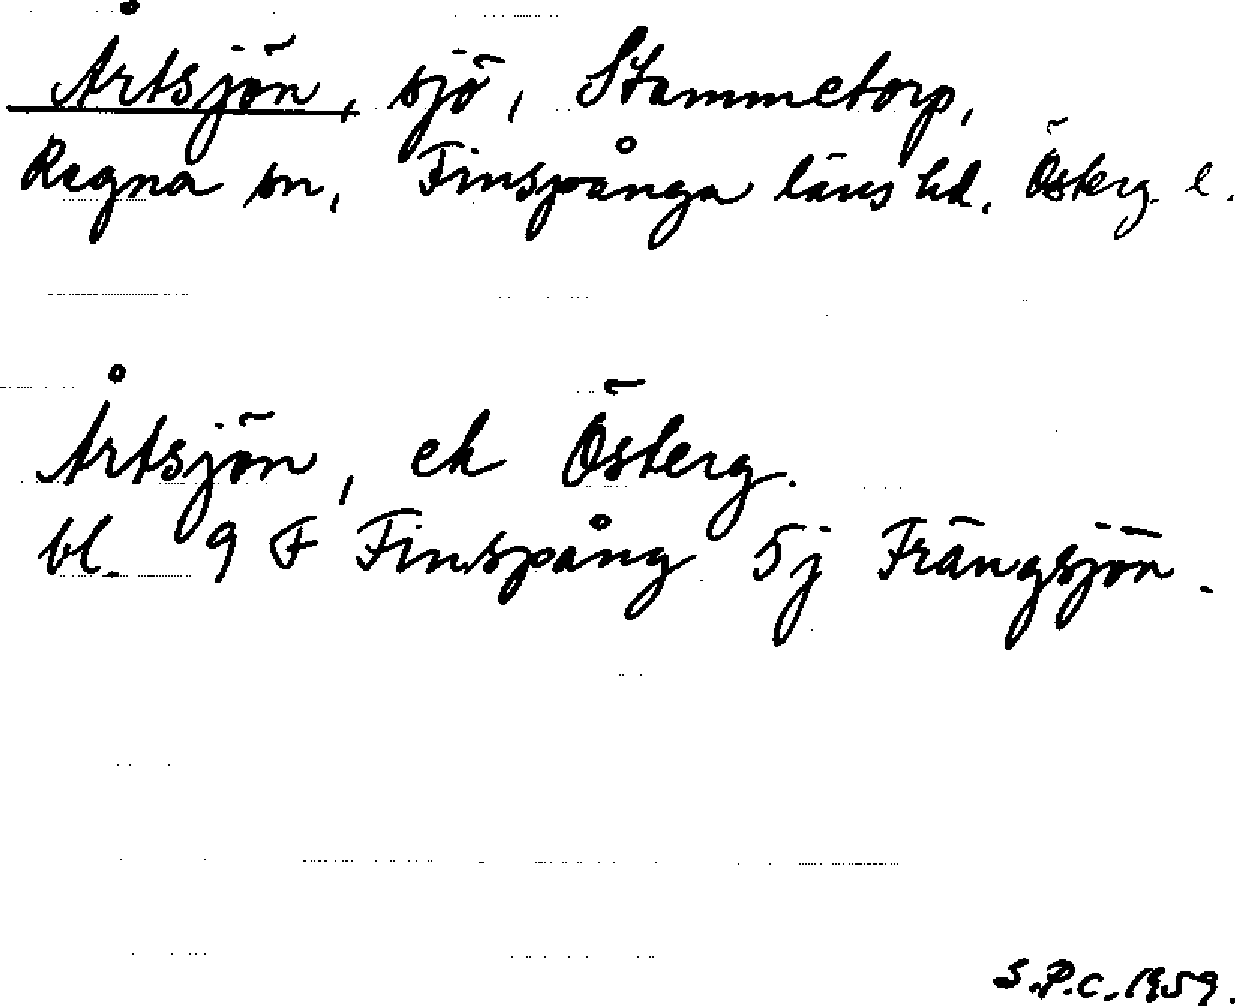 Årtsjön, sjö, Stammetorp,
Regna sn, Finspånga läns hd. Österg. l.
Årtsjön, ek Österg.
bl. 9 F Finspång 5j Frängsjön.
S.P.C. 1959.